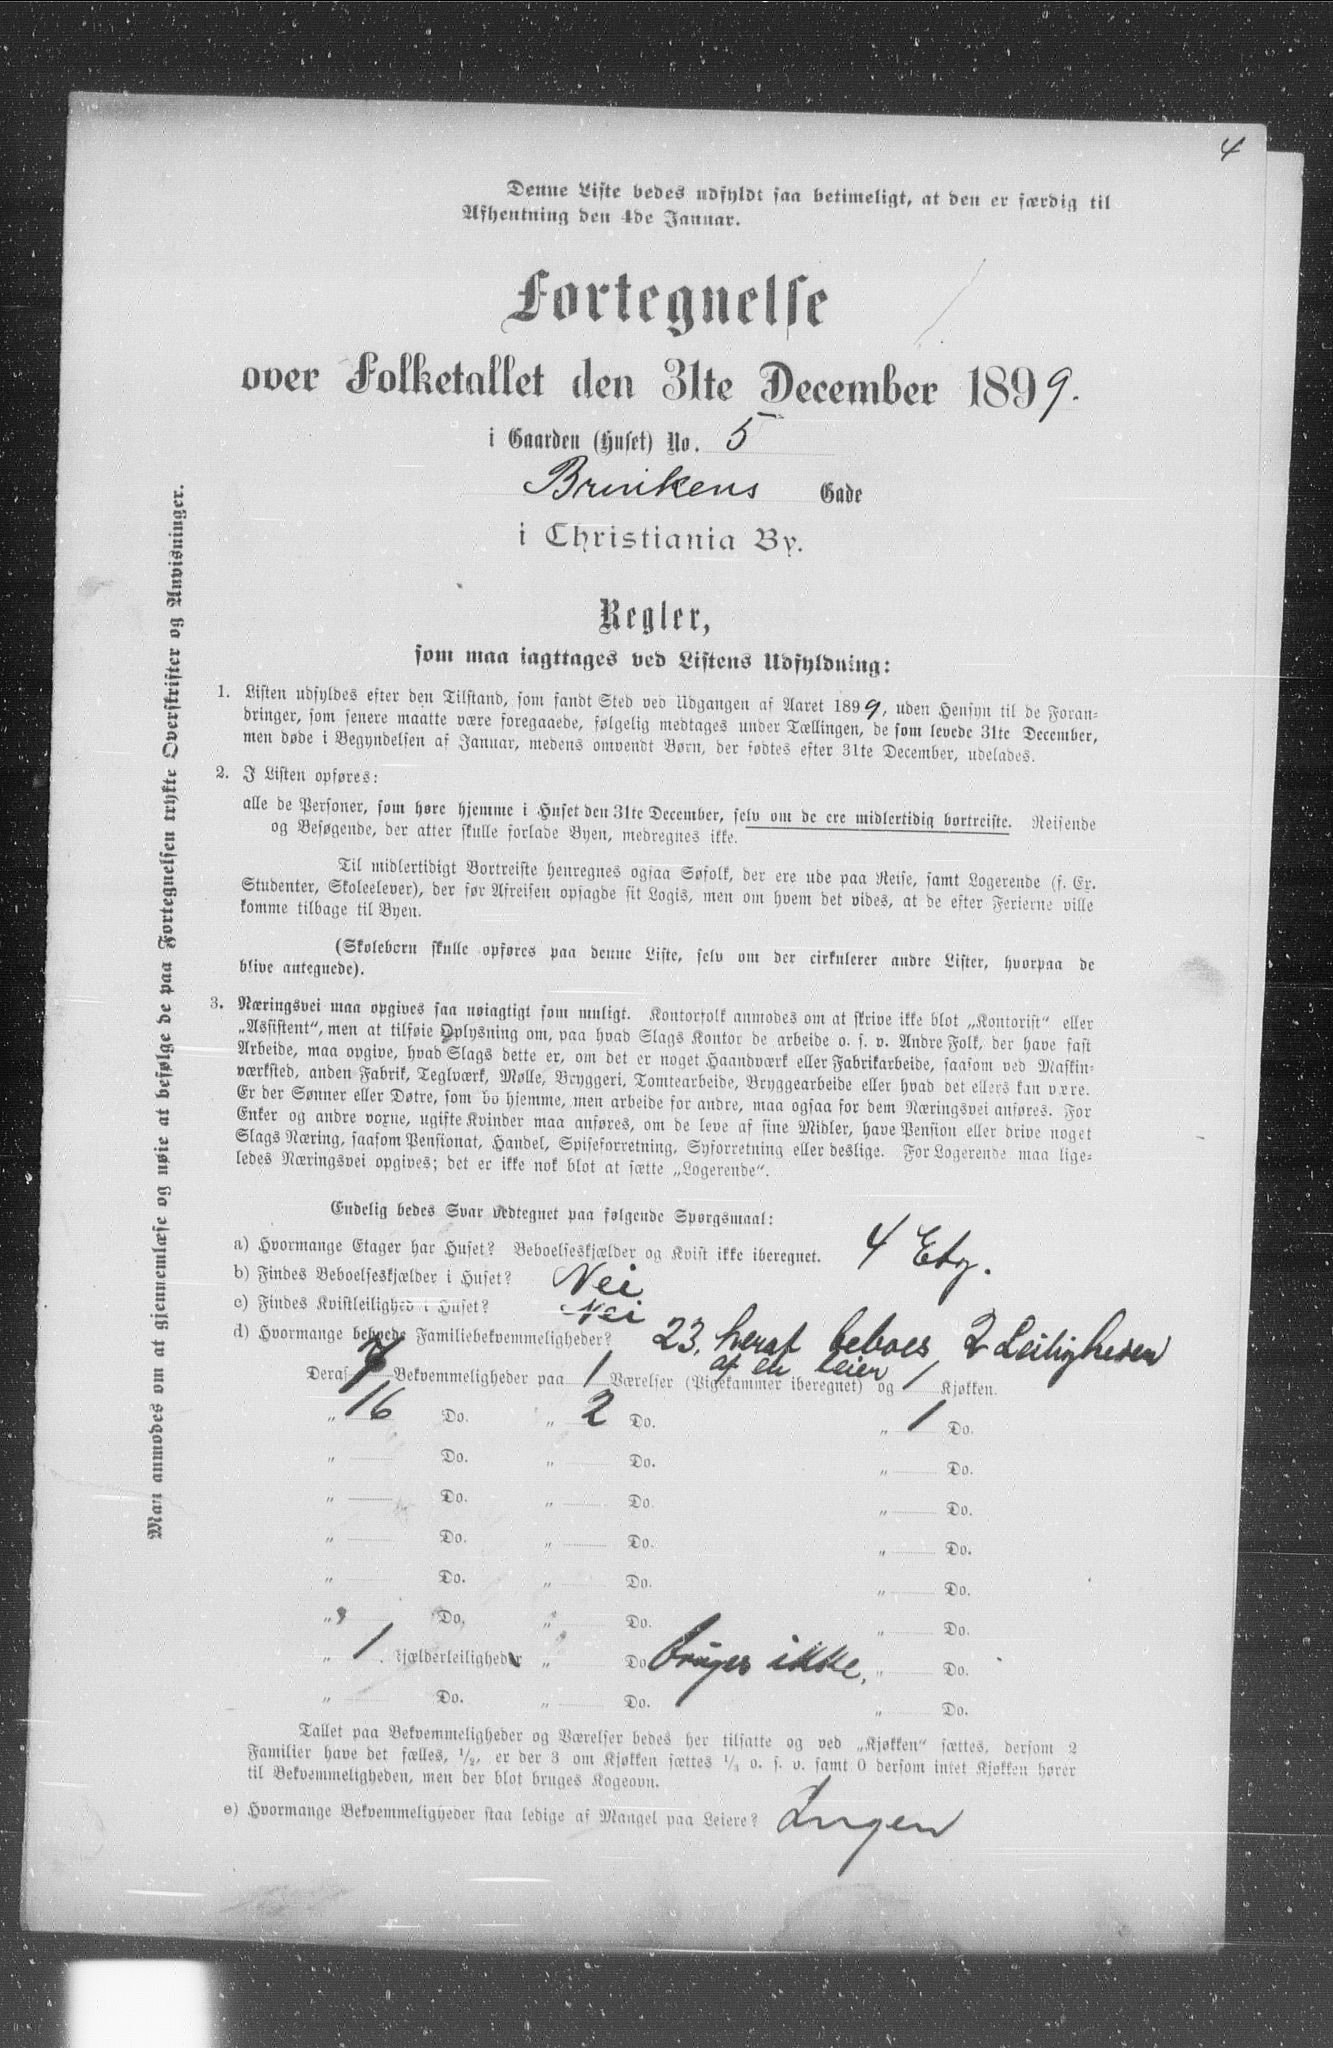 4
Denne Liste bedes udfyldt saa betimeligt, at den er færdig til
Afhentning den 4de Januar.
Fortegnelse
over Folketallet den 31te December 1899.
i Gaarden (Huset) No. 5
Brinkens Gade
i Christiania By.
Regler,
som maa iagttages ved Listens Udfyldning:
1. Listen udfyldes efter den Tilstand, som fandt Sted ved Udgangen af Aaret 1899, uden Hensyn til de Foran-
dringer, som senere maatte være foregaaede, følgelig medtages under Tællingen, de som levede 31te December,
men døde i Begyndelsen af Januar, medens omvendt Børn, der fødtes efter 31te December, udelades.
2. I Listen opføres:
alle de Personer, som høre hjemme i Huset den 31te December, selv om de ere midlertidig bortreiste. Reisende
og Besøgende, der atter skulle forlade Byen, medregnes ikke.
Til midlertidigt Bortreiste henregnes ogsaa Søfolk, der ere ude paa Reise, samt Logerende (f. Ex.
Studenter, Skoleelever), der før Afreisen opsagde sit Logis, men om hvem det vides, at de efter Ferierne ville
komme tilbage til Byen.
(Skolebørn skulle opføres paa denne Liste, selv om der cirkulerer andre Lister, hvorpaa de
blive antegnede).
3. Næringsvei maa opgives saa nøiagtigt som muligt. Kontorfolk anmodes om at skrive ikke blot „Kontorist“ eller
„Assistent“, men at tilføie Oplysning om, paa hvad Slags Kontor de arbeide o. s. v. Andre Folk, der have fast
Arbeide, maa opgive, hvad Slags dette er, om det er noget Haandværk eller Fabrikarbeide, saasom ved Maskin-
værksted, anden Fabrik, Teglværk, Mølle, Bryggeri, Tomtearbeide, Bryggearbeide eller hvad det ellers kan være.
Er der Sønner eller Døtre, som bo hjemme, men arbeide for andre, maa ogsaa for dem Næringsvei anføres. For
Enker og andre voxne, ugifte Kvinder maa anføres, om de leve af sine Midler, have Pension eller drive noget
Slags Næring, saasom Pensionat, Handel, Spiseforretning, Syforretning eller deslige. For Logerende maa lige-
ledes Næringsvei opgives; det er ikke nok blot at sætte „Logerende“.
Endelig bedes Svar vedtegnet paa følgende Spørgsmaal:
a) Hvormange Etager har Huset? Beboelseskjælder og Kvist ikke iberegnet. 4 Etg.
b) Findes Beboelseskjælder i Huset? Nei
c) Findes Kvistleilighed i Huset? Nei
d) Hvormange beboede Familiebekvemmeligheder? 23, heraf beboes 2 Leiligheder
af en leier
Deraf 7 Bekvemmeligheder paa 1 Værelser (Pigekammer iberegnet) og 1 Kjøkken.
„ 16 Do. „ 2 Do. „ 1 Do.
„ Do. „ Do. „ Do.
„ Do. „ Do. „ Do.
„ Do. „ Do. „ Do.
„ Do. „ Do. „ Do.
„ Do. „ Do. „ Do.
„ 1 kjælderleiligheder „ Do bruges ikke, „ Do.
„ Do. „ Do. „ Do.
Tallet paa Bekvemmeligheder og Værelser bedes her tilsatte og ved „Kjøkken“ sættes, dersom 2
Familier have det fælles, 1/2, er der 3 om Kjøkken sættes 1/3 o. s. v. samt 0 dersom intet Kjøkken hører
til Bekvemmeligheden, men der blot bruges Kogeovn.
e) Hvormange Bekvemmeligheder staa ledige af Mangel paa Leiere? Ingen
Man anmodes om at gjennemlæse og nøie at befølge de paa Fortegnelsen trykte Overskrifter og Anvisninger.